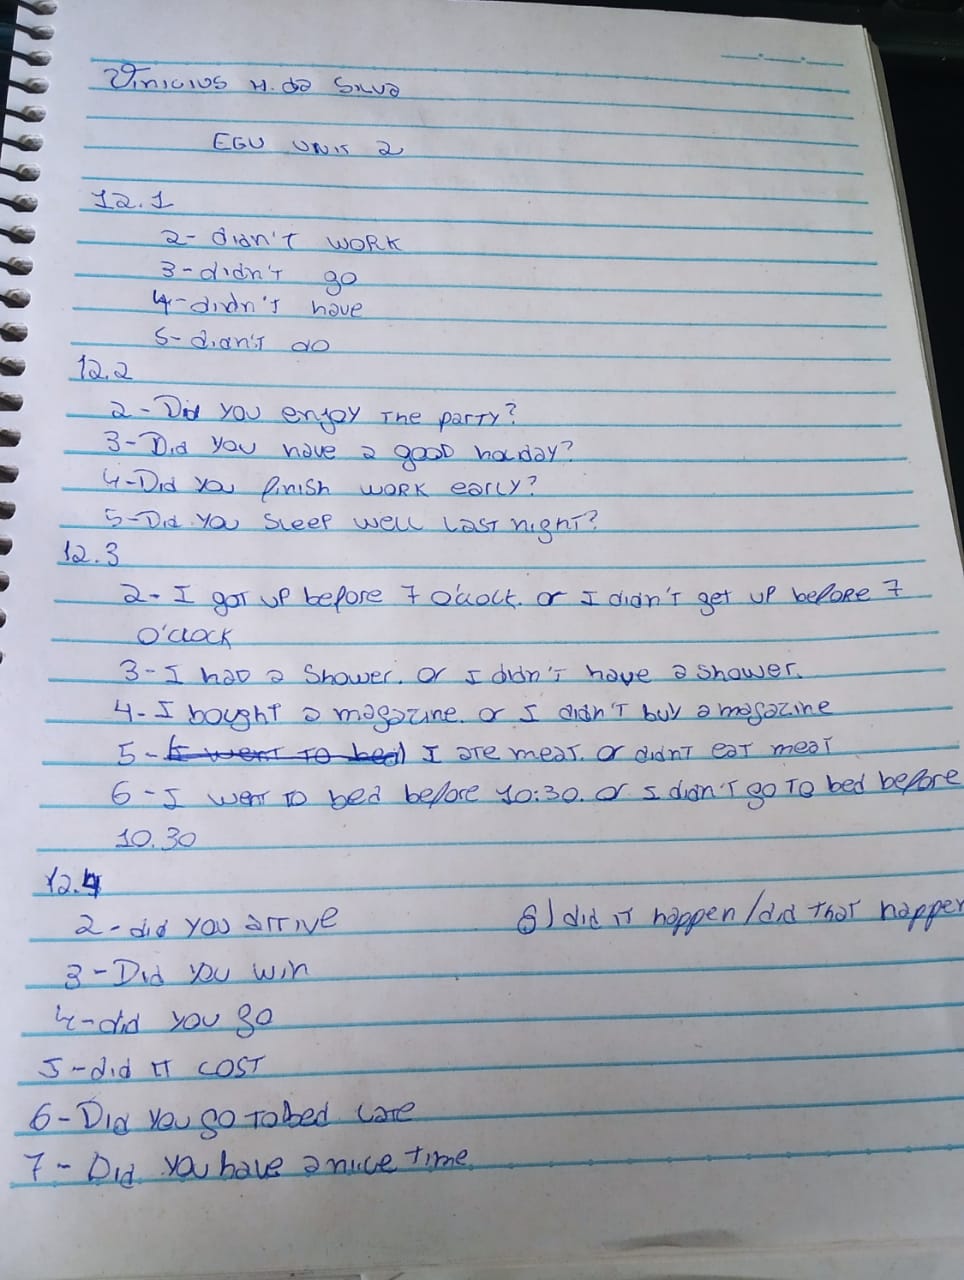 Vinicius H. da Silva
EGU UNIT 2
12.1
2- didn't work
3- didn't go
4- didn't have
5- didn't do
12.2
2- Did you enjoy the party?
3- Did you have a good holiday?
4- Did you finish work early?
5- Did you sleep well last night?
12.3
2- I got up before 7 o'clock. or I didn't get up before 7
o'clock
3- I had a shower. or I didn't have a shower.
4- I bought a magazine. or I didn't buy a magazine
5- I went to bed I ate meat. or didn't eat meat
6- I went to bed before 10:30. or I didn't go to bed before
10.30
12.4
2- did you arrive 8) did it happen/did that happen
3- Did you win
4- did you go
5- did it cost
6- Did you go to bed late
7- Did you have a nice time